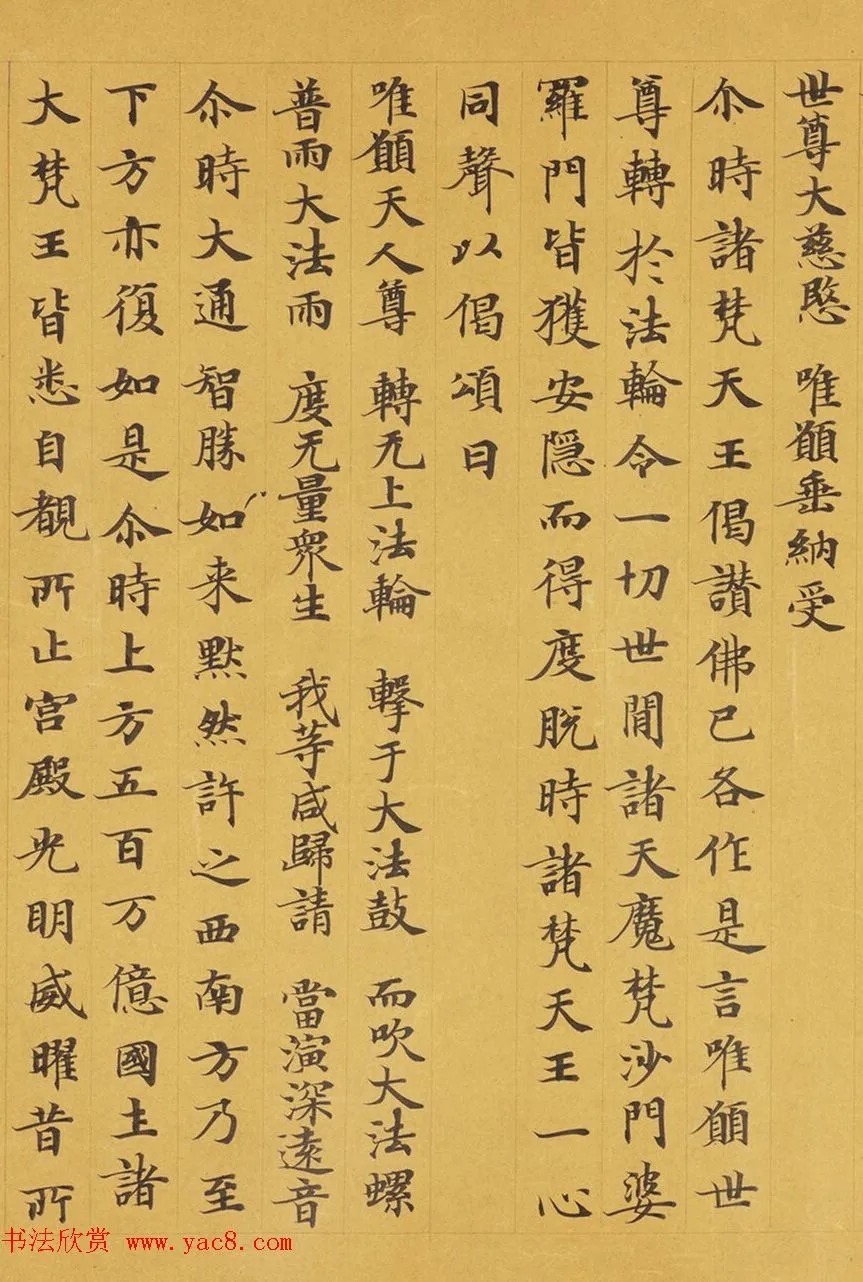 世尊大慈愍　唯願垂納受
尒時諸梵天王偈讚佛已各作是言唯願世
尊轉於法輪令一切世間諸天魔梵沙門婆
羅門皆獲安隱而得度脫時諸梵天王一心
同聲以偈頌曰
唯願天人尊　轉无上法輪　擊于大法鼓　而吹大法螺
普雨大法雨　度无量眾生　我等咸歸請　當演深遠音
尒時大通智勝如来默然許之西南方乃至
下方亦復如是尒時上方五百万億國土諸
大梵王皆悉自覩所止宮殿光明威曜昔所
书法欣赏 www.yac8.com